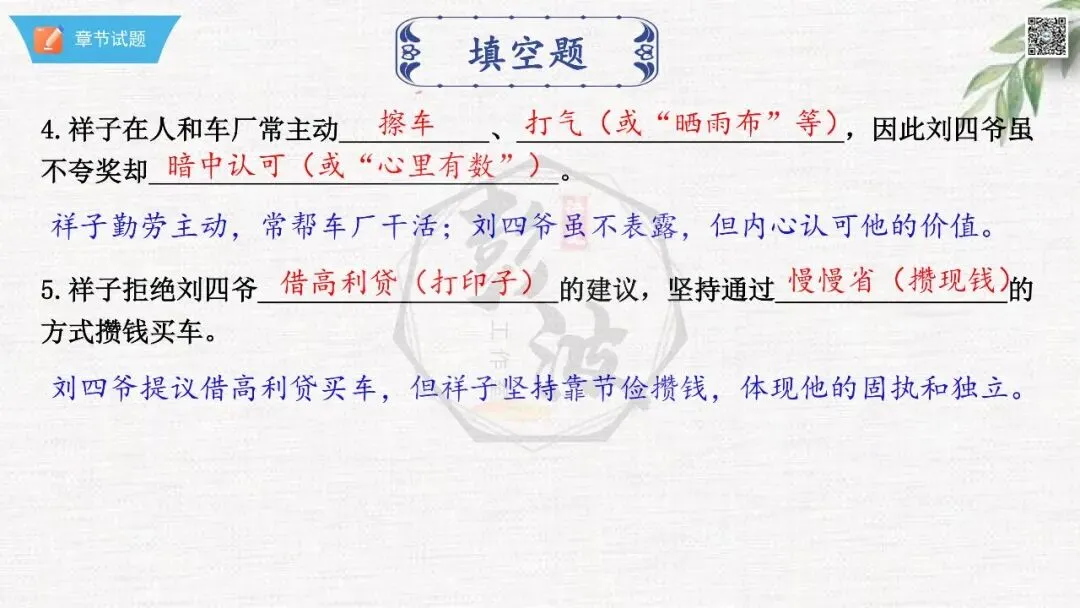 章节试题
填空题
4.祥子在人和车厂常主动 擦车 、 打气（或“晒雨布”等），因此刘四爷虽
不夸奖却 暗中认可（或“心里有数”） 。
祥子勤劳主动，常帮车厂干活；刘四爷虽不表露，但内心认可他的价值。
5.祥子拒绝刘四爷 借高利贷（打印子） 的建议，坚持通过 慢慢省（攒现钱） 的
方式攒钱买车。
刘四爷提议借高利贷买车，但祥子坚持靠节俭攒钱，体现他的固执和独立。